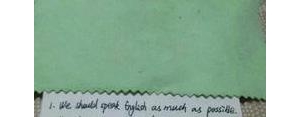 1. We should speak English as much as possible.